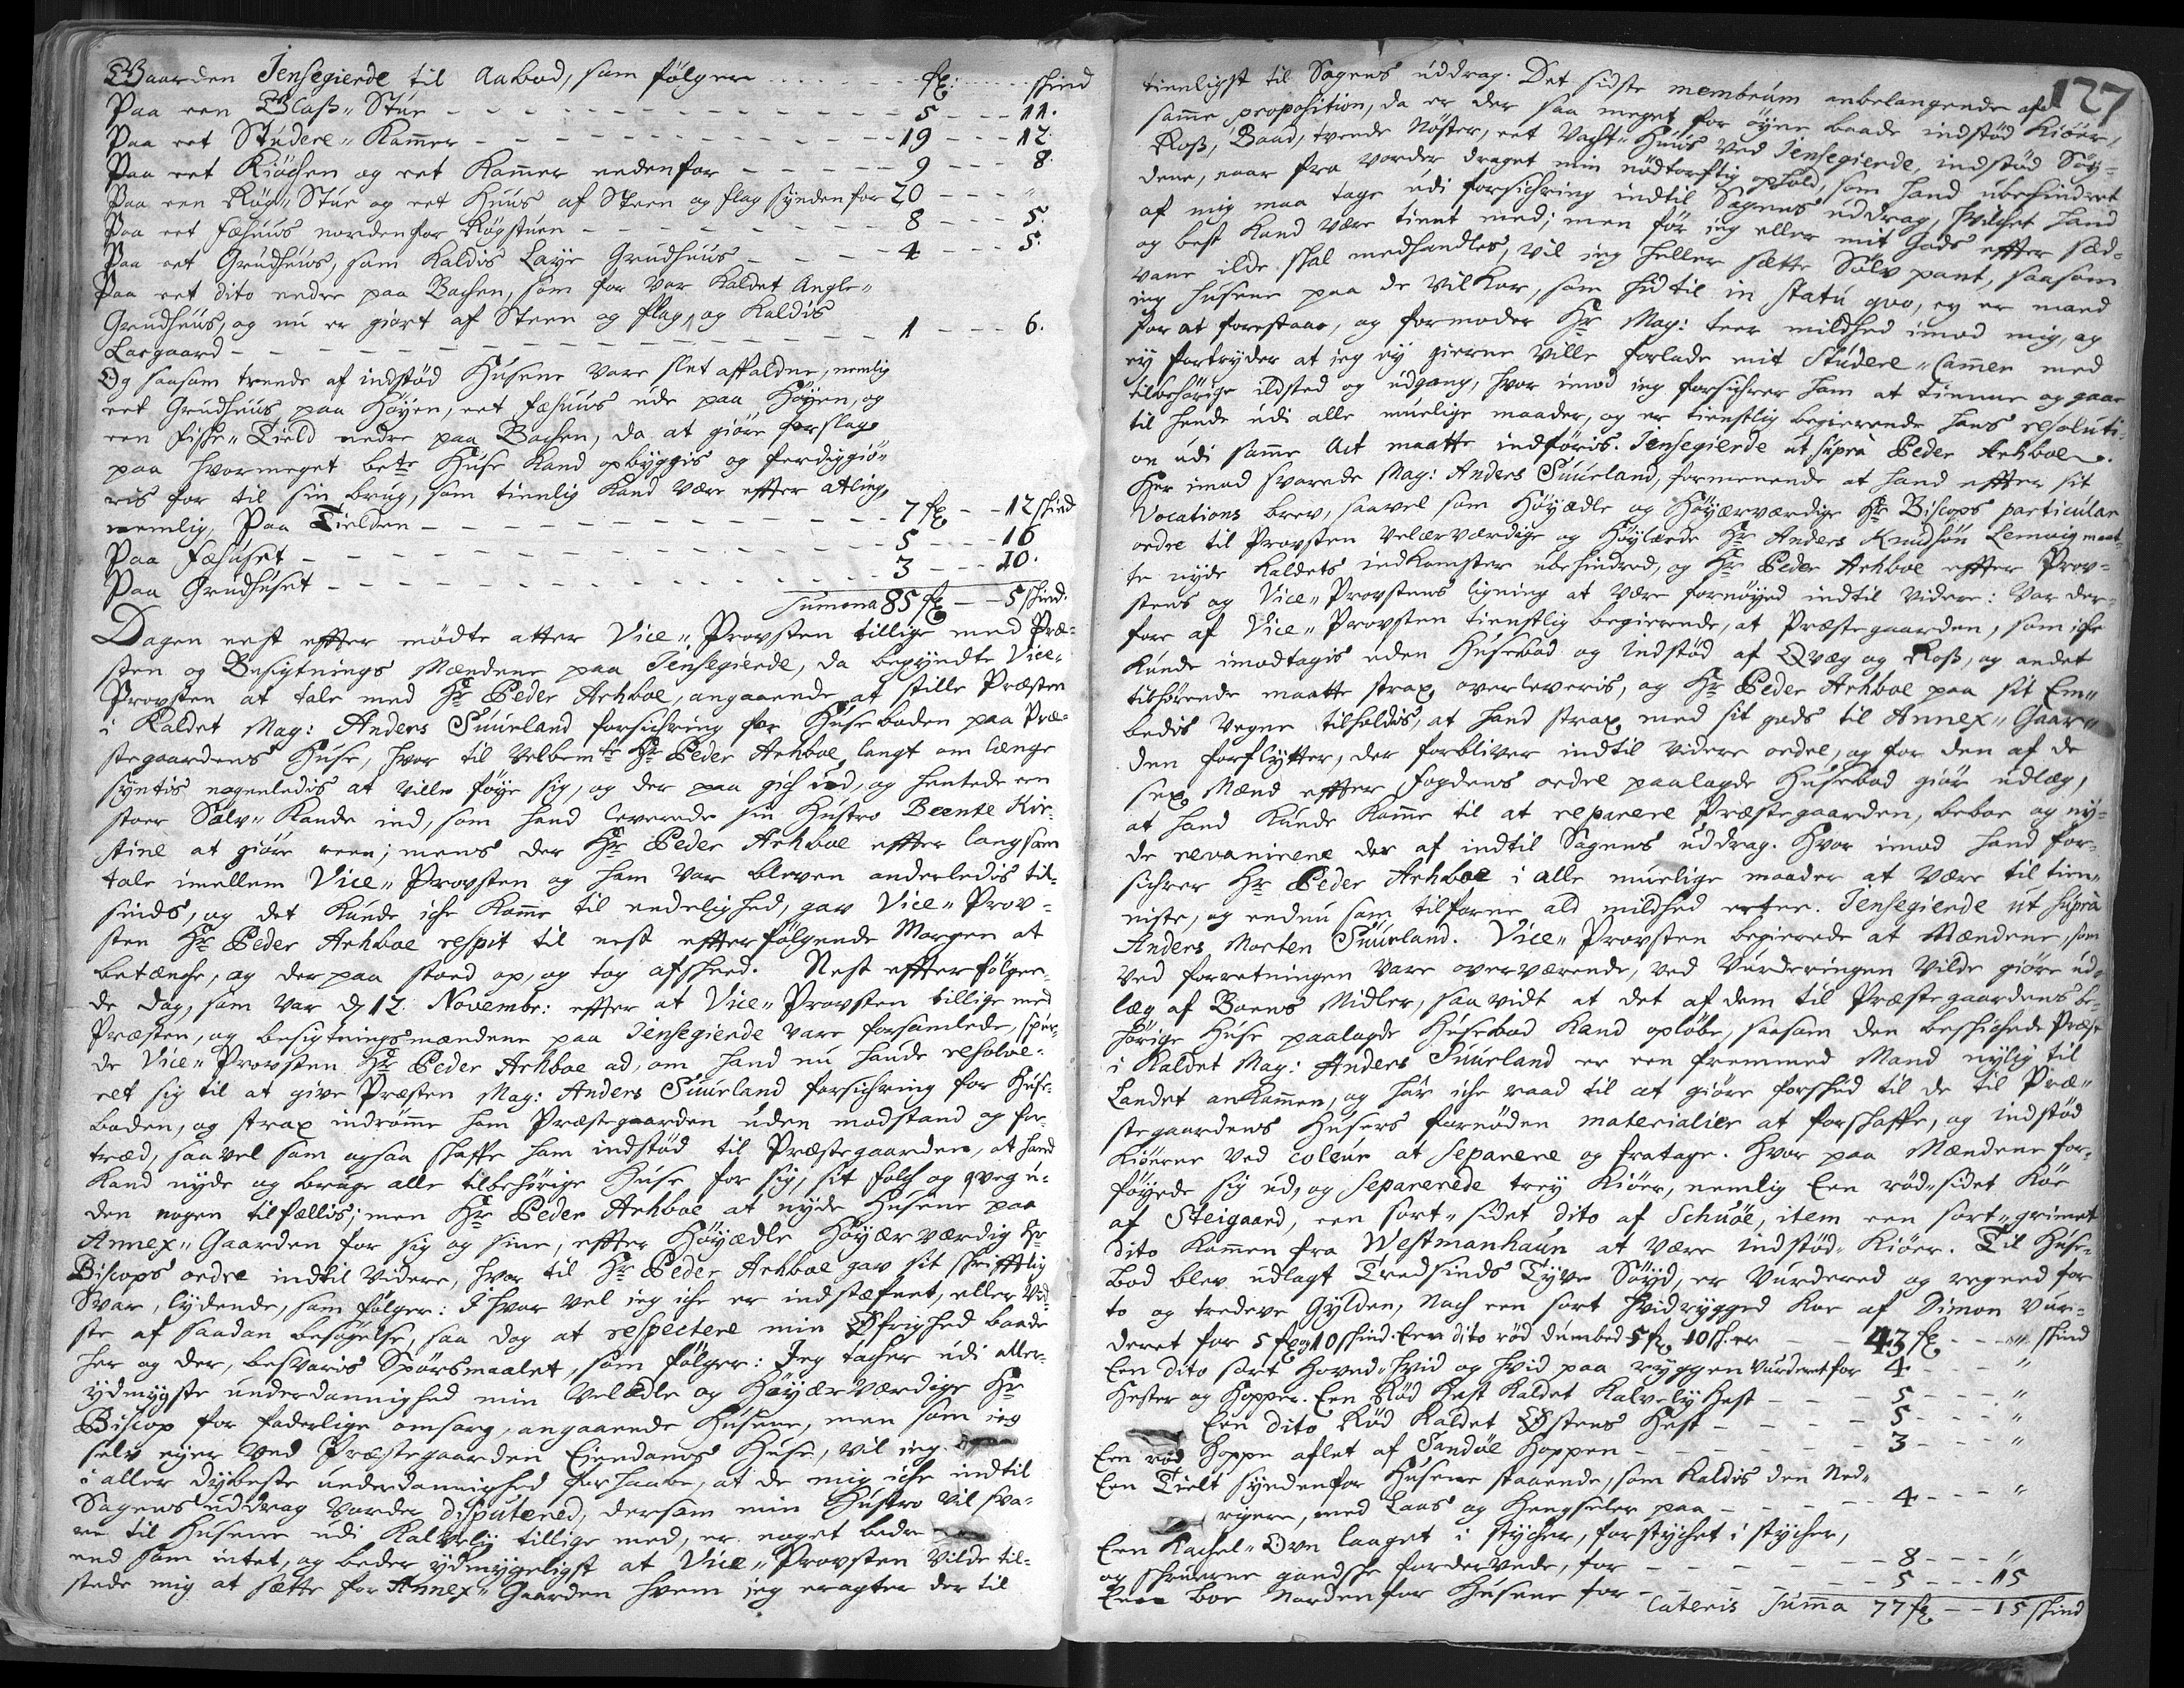 Gaarden Jensegierde til Aabod, som følger - - - fℓ: - - - skind
Paa een Glass„ Stue - - - 5 - - - 11.
Paa eet Studere„ Kammer - - - 19 - - - 12
Paa eet Kiöchen og eet Kammer nedenfor - - - 9 - - - 8.
Paa een Røg„ Stue og eet Huus af Steen og flag synden for 20 - - - „
Paa eet fæhuus norden for Røgstuen - - - 8 - - - 5.
Paa eet Grudhuus, som Kaldis Laye Grudhuus - - - 4 - - - 5.
Paa eet dito nedre paa Bachen, som før var Kaldet Angle„
Grudhuus, og nu er giort af Steen og flag, og Kaldis
Largaard - - - 1 - - - 6.
Og saasom trende af indstød Husene vare slet affaldne, nemlig
eet Grudhuus paa Høyen, eet fæhuus ude paa Høyen, og
een fiske„ Tield nedre paa Bachen, da at giöre forslag
paa hvormeget bete Huse Kand opbyggis og ferdiggiö„
ris for til sin brug, som tienlig Kand være effter atling,
nemlig, Paa Tielden - - - 7 fℓ - - 12 skind
Paa fæhuset - - - 5 - - - 16
Paa Grudhuset - - - 3 - - - 10.
Summa 85 fℓ - - 5 skind.
Dagen nest effter mödte atter Vice„ Provsten tillige med Præ„
sten og Besigtnings Mændene paa Jensegierde, da begyndte Vice„
Provsten at tale med Hr Peder Arhboe, angaaende at stille Præsten
i Kaldet Mag: Anders Suurland forsichring for Huseboden paa Præ„
stegaardens Huse, hvor til Velbemte Hr Peder Arhboe, langt om længe
syntis nogenledis at ville føye sig, og der paa gich ud, og hentede een
stoer Sølv„ Kande ind, som hand leverede sin Hustro Beente Kir„
stine at giöre reen; mens der Hr Peder Arhboe effter langsom
tale imellem Vice„ Provsten og ham var bleven anderledis til„
sinds, og det Kunde iche Komme til endelighed, gav Vice„ Prov„
sten Hr Peder Arhboe respit til nest effterfølgende Morgen at
betænche, og der paa stoed op, og tog afskeed. Nest effterfølgen„
de Dag, som var d 12. Novembr: effter at Vice„ Provsten tillige med
Præsten, og besigtningsmændene paa Jensegierde vare forsamlede, spur„
de Vice„ Provsten Hr Peder Arhboe ad, om hand nu hafde resolve„
ret sig til at give Præsten Mag: Anders Suurland forsichring for Huse„
boden, og strax indrömme ham Præstegaarden uden modstand og for„
træd, saavel som ogsaa skaffe ham indstød til Præstegaarden, at hand
Kand nyde og bruge alle tilbehørige Huse for sig, sit folk og qveg u„
den nogen tilfællis; men Hr Peder Arhboe at nyde Husene paa
Annex„ Gaarden for sig og sine, effter Høyædle Høyærværdig Hr
Biscops ordre indtil videre, hvor til Hr Peder Arhboe gav sit skrifftlig
Svar, lydende, som følger: I hvor vel jeg iche er indstæfnet, eller Vid„
ste af saadan besøgelse, saa dog at respectere min Øfrighed baade
her og der, besvaris Spørsmaalet, som følger: Jeg tacher udi aller„
ydmygste underdannighed min Velædle og Høyærværdige Hr
Biscop for faderlige omsorg, angaaende Husene, men som jeg
selv eyer ved Præstegaarden Eiendams Huse, vil jeg
i aller dybeste underdannighed forhaabe, at de mig iche indtil
Sagens uddrag vorder disputered, dersom min Hustro vil sva„
re til Husene udi Kalvely tillige med, er noget bedre
end som intet, og beder ydmygeligst at Vice„ Provsten vilde til„
stede mig at sætte for Annex„ Gaarden hvem jeg eragter der til
127
tienligst til Sagens uddrag. Det sidste membrum anbelangende af
samme proposition, da er der saa meget for øyne baade indstød Kiöer,
Ross, Baad, tvende Nøster, eet Vacht„ Huus ved Jensegierde, indstød Søy„
dene, naar fra vorder draget min nødtørftig ophold, som hand ubehindret
af mig maa tage udi forsichring indtil Sagens uddrag, hvilchet hand
og best Kand være tient med; men før jeg eller mit Gods effter sæd„
vane ilde skal medhandles, vil jeg heller sætte Sølv pant, saasom
jeg husene paa de vilkor, som hidtil in statu qvo, ey er mand
for at forestaae, og formoder Hr Mag: teer mildhed imod mig, og
ey fortryder at jeg ey gierne ville forlade mit Studere„ Cammer med
tilbehørige ildsted og udgang, hvor imod jeg forsichrer ham at tienne og gaae
til hende udi alle muelige maader, og er tienstlig begierende hans resoluti„
on udi samme Act maatte indføris. Jensegierde ut supra Peder Arhboe.
Her imod svarede Mag: Anders Suurland, formenende at hand effter sit
Vocations brev, saavel som Høyædle og Høyærværdige Hr Biscops particular
ordre til Provsten Velærværdige og Høylærde Hr Anders Knudsön Lemvig maat„
te nyde Kaldets indkomster ubehindred, og Hr Peder Arhboe effter Prov„
stens og Vice„ Provstens ligning at være fornøyed indtil videre: var der„
fore af Vice„ Provsten tienstlig begierende, at Præstegaarden, som iche
Kunde imodtagis uden Husebod og Indstød af Qvæg og Ross, og andet
tilhørende maatte strax overleveris, og Hr Peder Arhboe paa sit Em„
bedis Vegne tilholdis, at hand strax med sit gods til Annex„ Gaar„
den forflytter, der forbliver indtil videre ordre, og for den af de
sex Mænd effter fogdens ordre paalagde Husebod giör udlæg,
at hand Kunde Komme til at reparere Præstegaarden, beboe og ny„
de revanirene der af indtil Sagens uddrag. Hvor imod hand for„
sichrer Hr Peder Arhboe i alle muelige maader at være til tien„
niste, og endnu som tilforne ald mildhed erter. Jensegierde ut supra
Anders Morten Suurland. Vice„ Provsten begierede at Mændene, som
ved forretningen vare overværende, ved Vurderingen vilde giöre ud„
læg af Boens Midler, saa vidt at det af dem til Præstegaardens be„
hørige Huse paalagde Husebod Kand opløbe, saasom den beskichede Præst
i Kaldet Mag: Anders Suurland er een fremmed Mand nylig til
Landet ankommen, og har iche raad til at giöre forskud til de til Præ„
stegaardens Husers fornöden materialier at forskaffe, og indstød
Kiöerne ved coleur at separere og fratage. Hvor paa Mændene for„
føyede sig ud, og separerede trey Kiöer, nemlig Een rød„sidet Köe
af Steigaard, een sort„ sidet dito af Schuöe, item een sort„ grimet
dito Kommen fra Westmanhaun at være Indstød„ Kiöer. Til Huse„
bod blev udlagt Tredsinds Tyve Søyd, er Vurdered og regned for
to og tredeve Gylden, Nach een sort Hvidrygged Koe af Simon vur„
deret for 5 fℓ og 10 skind. Een dito rød dumbed 5 fℓ 10 sk. er - - - 43 fℓ - - - „ skind
Een dito sort Hoved„ Hvid og Hvid paa ryggen Vurderet for 4 - - - „
Hester og Hopper. Een Rød Hest Kaldet Kalvely Hest - - - 5 - - - „
Een dito Rød Kaldet Østens Hest - - - 5 - - - „
Een rød Hoppe aflet af Sandöe Hoppen - - - 3 - - - „
Een Tielt syndenfor Husene staaende, som Kaldis den Ned„
rigere, med Laas og Hengseler paa - - - 4 - - - „
Een Kachel„ Ovn laaget i stycher, forstychet i stycher,
og skruerne gandske fordervede, for - - - 8 - - - „
Een boe Nordenfor Husene for - - - 5 - - - 15
Lateris Summa 77 fℓ - - 15 skind